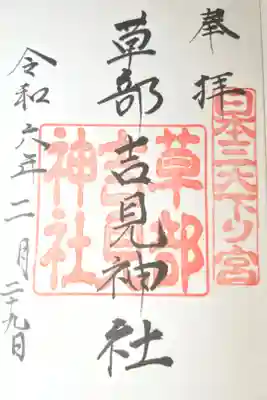 奉拝
日本三大下り宮
草部吉見神社
草部
吉見
神社
令和六年二月二十九日